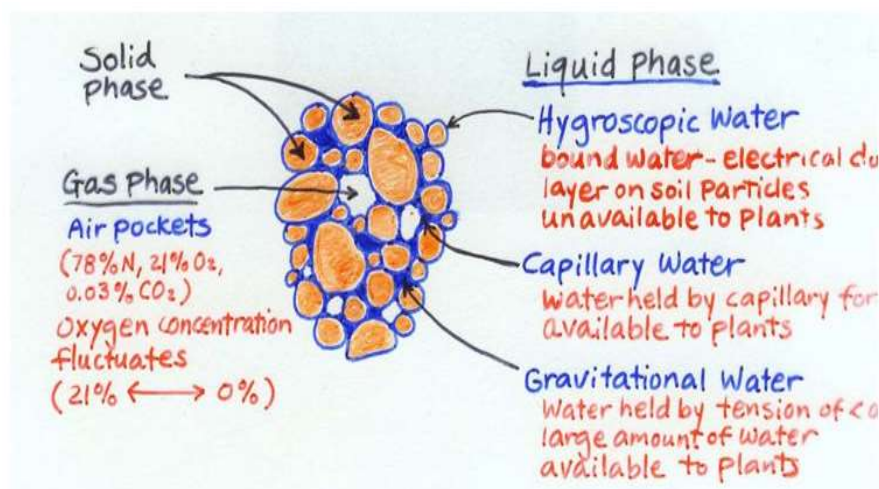 Solid
phase
Gas phase
Air pockets
(78%N, 21%O₂,
0.03%CO₂)
Oxygen concentration
fluctuates
(21% ⟷ 0%)
Liquid phase
Hygroscopic Water
bound water - electrical
layer on soil particles
unavailable to plants
Capillary Water
water held by capillary for
available to plants
Gravitational Water
Water held by tension of <
large amount of water
available to plants